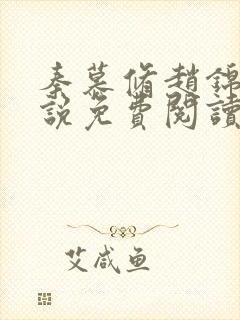 秦慕脩趙錦
說免費閱讀
艾咸鱼